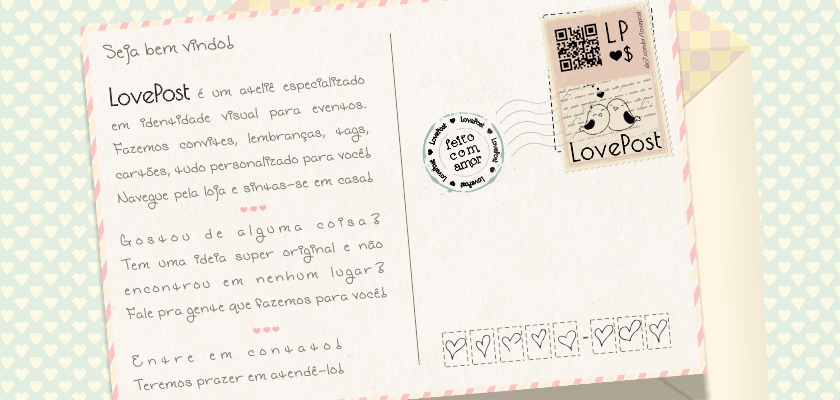 Seja bem vindo!
LovePost é um ateliê especializado
em identidade visual para eventos.
Fazemos convites, lembranças, tags,
cartões, tudo personalizado para você!
Navegue pela loja e sintas-se em casa!
Gostou de alguma coisa?
Tem uma ideia super original e não
encontrou em nenhum lugar?
Fale pra gente que fazemos para você!
Entre em contato!
Teremos prazer em atendê-lo!
LovePost LovePost LovePost LovePost LovePost
feito
com
amor
LP
$
LovePost